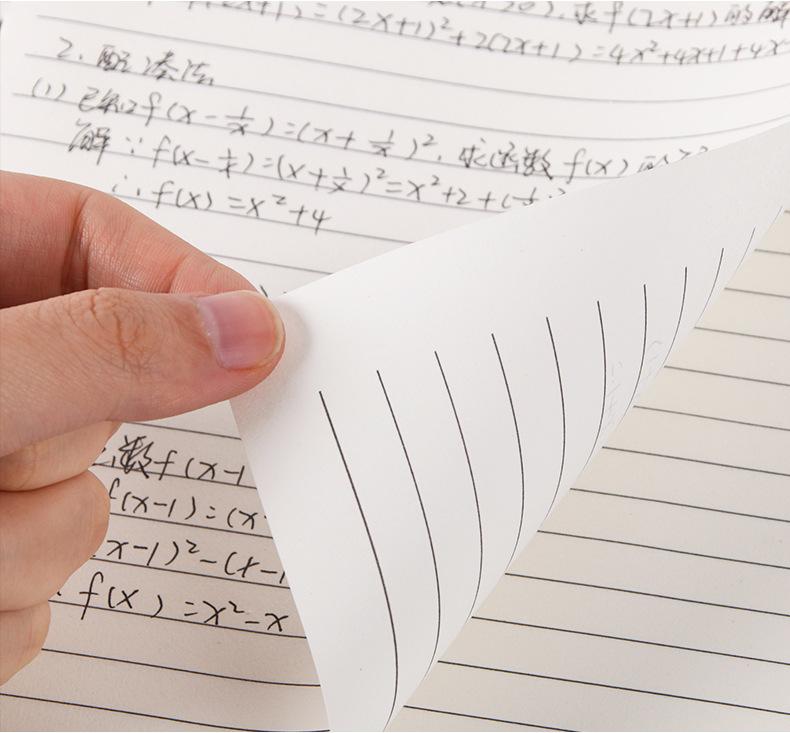 f(2x+1)=(2x+1)²+2(2x+1)=4x²+4x+1+4x
2. 配凑法
(1) 已知f(x-1/x)=(x+1/x)², 求函数f(x)的
解∵f(x-1/x)=(x+1/x)²=x²+2+(
∴f(x)=x²+4
数f(x-1
f(x-1)=(x-
x-1)²-(x-1
f(x)=x²-x